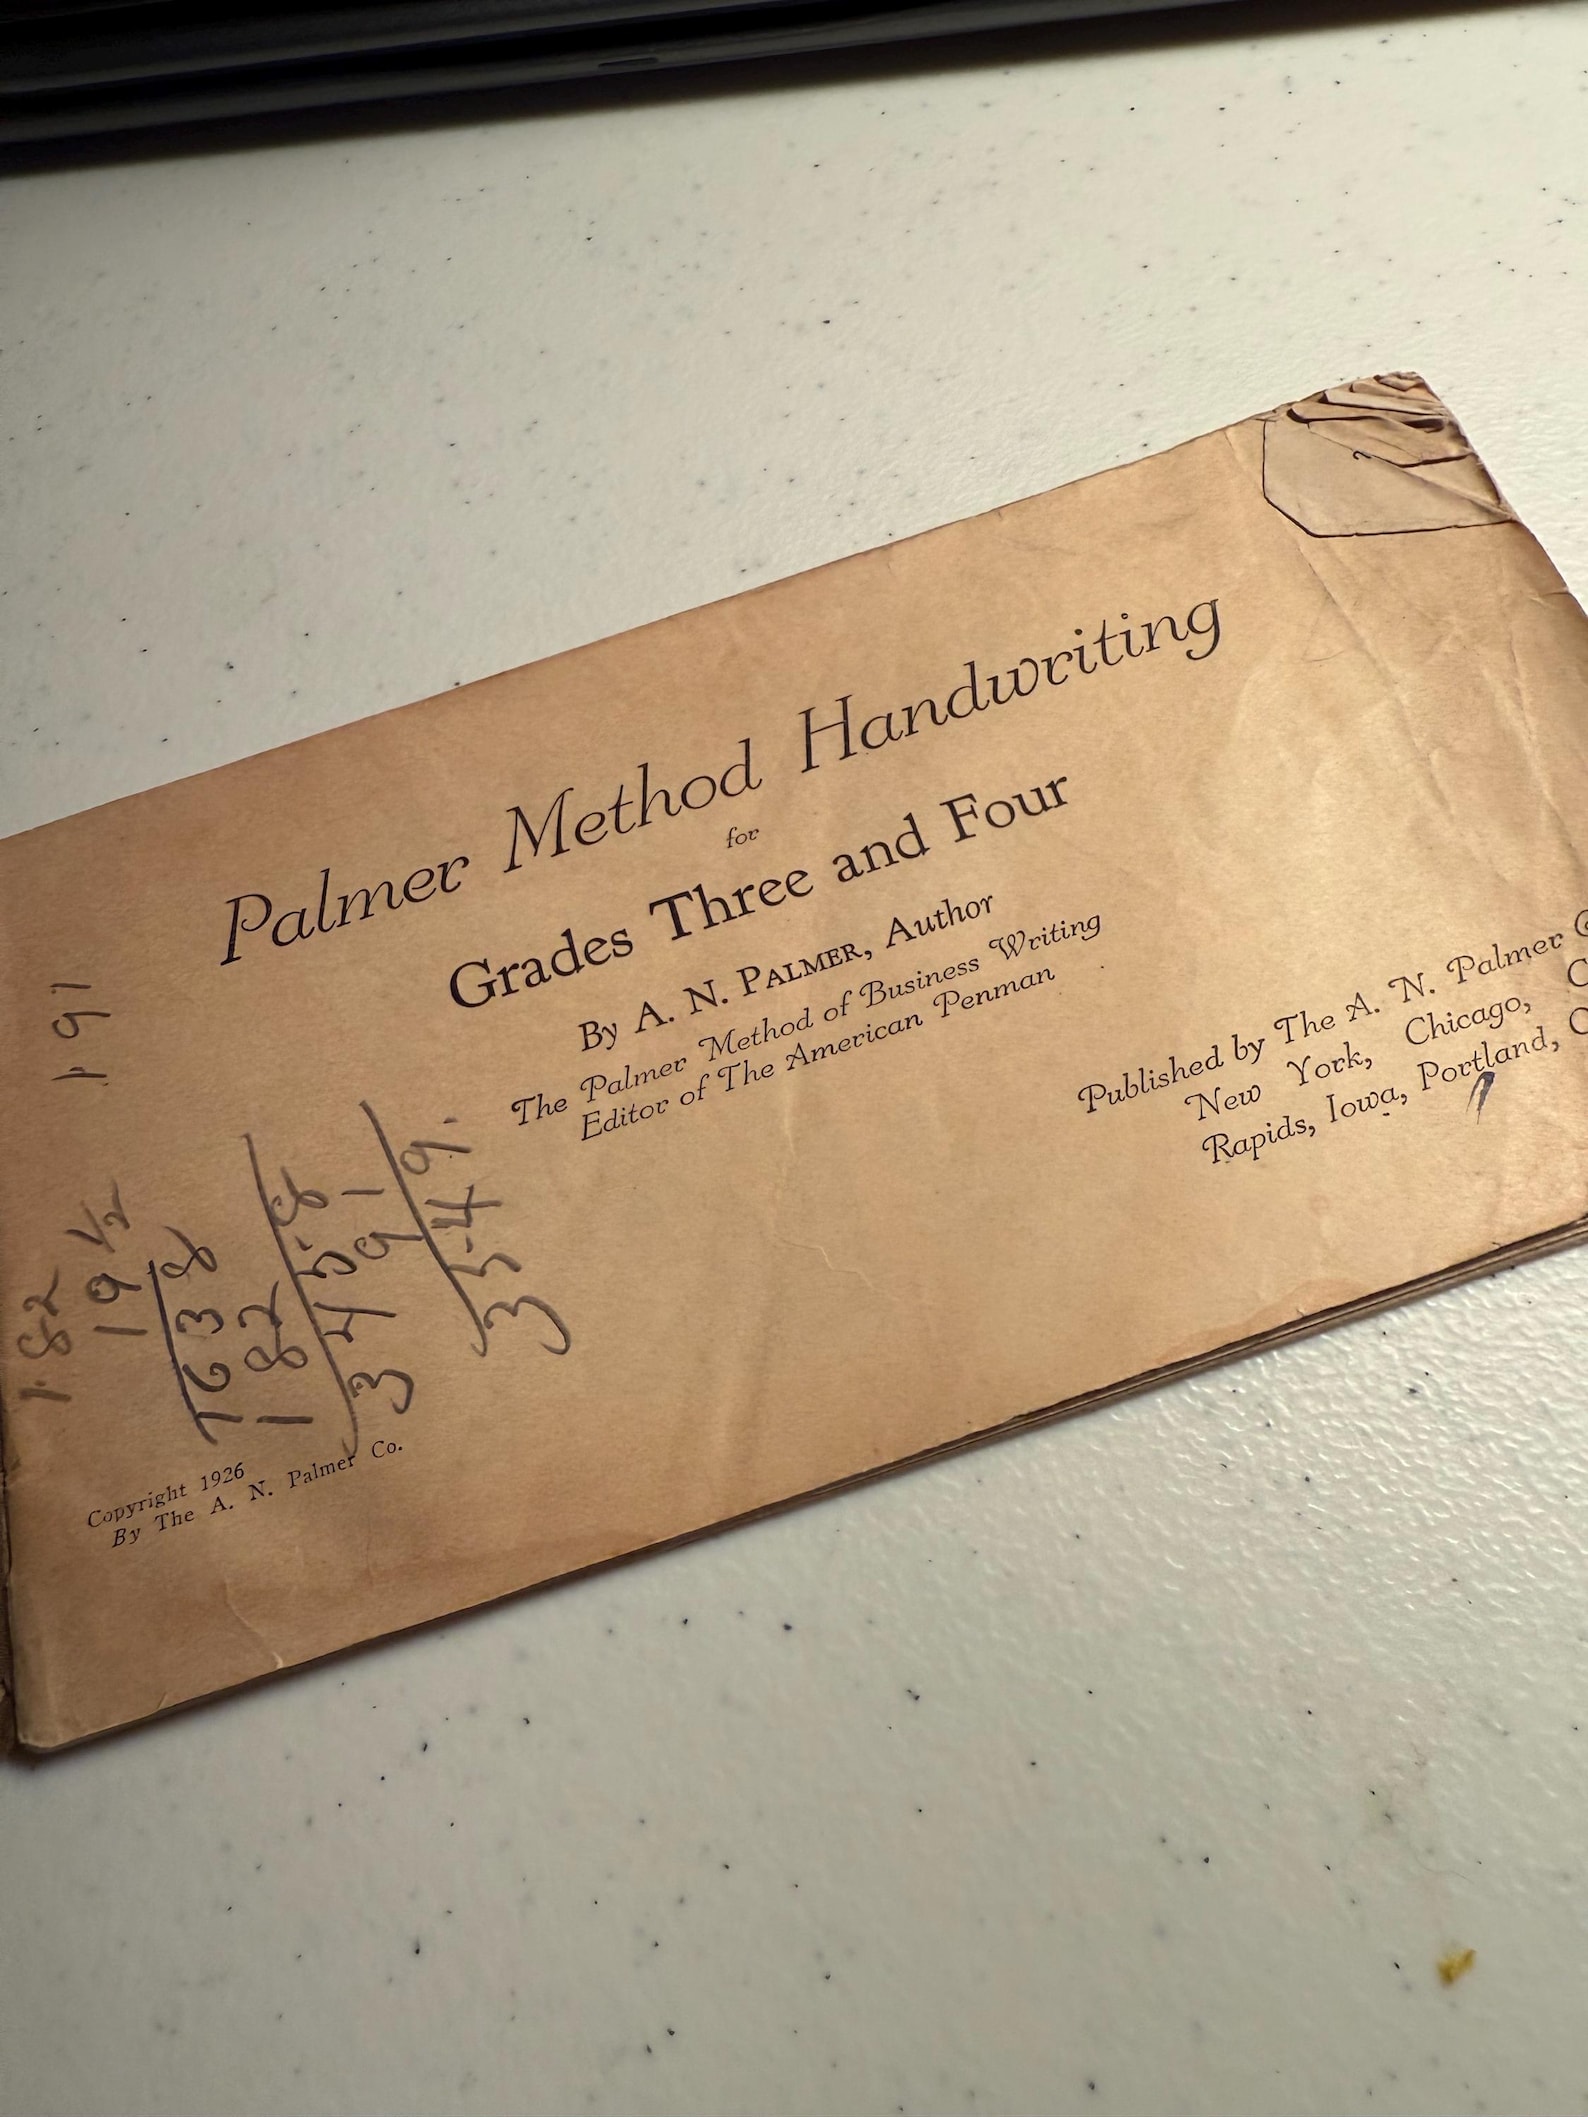 Palmer Method Handwriting
for
Grades Three and Four
By A. N. PALMER, Author
The Palmer Method of Business Writing
Editor of The American Penman
Published by The A. N. Palmer
New York, Chicago,
Rapids, Iowa, Portland,
1.91
1.82
19 1/2
1638
182
3458
91
3549.
Copyright 1926
By The A. N. Palmer Co.